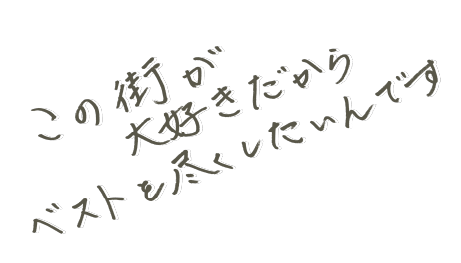 この街が
大好きだから
ベストを尽くしたいんです